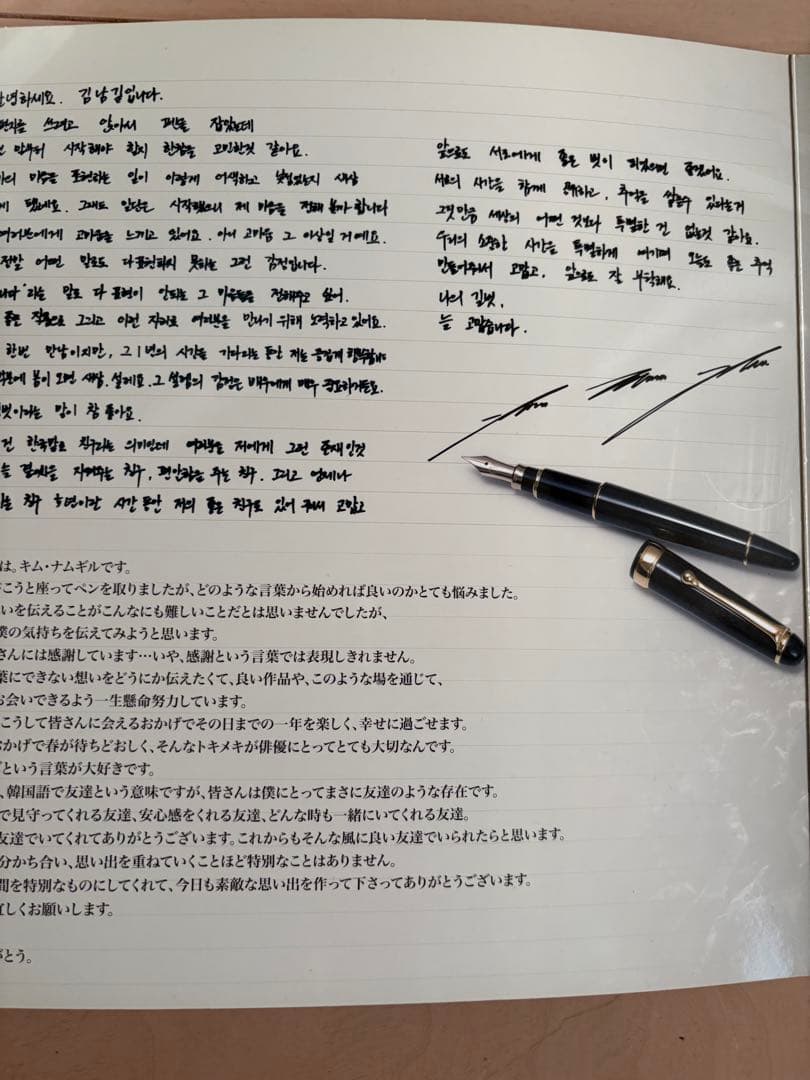 안녕하세요. 김남길입니다.
편지를 쓰려고 앉아서 펜을 잡았는데
말부터 시작해야 할지 한참을 고민한것 같아요.
마음을 표현하는 일이 이렇게 어색하고 낯설었는지 새삼
됐네요. 그래도 일단은 시작했으니 제 마음을 전해 볼까 합니다
여러분에게 고마움을 느끼고 있어요. 아니 고마움 그 이상일 거예요.
정말 어떤 말로도 다 표현하지 못하는 그런 감정입니다.
라는 말로 다 표현이 안되는 그 마음들을 전해주고 싶어.
좋은 작품으로 그리고 이런 자리로 여러분을 만나기 위해 노력하고 있어요.
한번 만남이지만, 그 1년의 시간을 기다리는 동안 저는 즐겁게 행복합니다
봄이 오면 새삼. 설레요. 그 설렘의 감정은 배우에게 매우 중요하거든요.
이라는 말이 참 좋아요.
건 한국말로 친구라는 의미인데 여러분은 저에게 그런 존재인것
곁에서 지켜주는 친구, 편안함을 주는 친구. 그리고 언제나
친구 시간 동안 저의 좋은 친구로 있어 줘서 고맙고
앞으로도 서로에게 좋은 벗이 되었으면 좋겠어요.
서로의 시간을 함께 공유하고, 추억을 쌓을수 있다는거
그것만큼 세상의 어떤 것보다 특별한 건 없는것 같아요.
우리의 소중한 시간을 특별하게 여기며 오늘도 좋은 추억
만들어주셔서 고맙고, 앞으로도 잘 부탁해요.
나의 길벗,
늘 고맙습니다.
は。キム・ナムギルです。
こうと座ってペンを取りましたが、どのような言葉から始めれば良いのかとても悩みました。
いを伝えることがこんなにも難しいことだとは思いませんでしたが、
僕の気持ちを伝えてみようと思います。
さんには感謝しています…いや、感謝という言葉では表現しきれません。
葉にできない想いをどうにか伝えたくて、良い作品や、このような場を通じて、
お会いできるよう一生懸命努力しています。
こうして皆さんに会えるおかげでその日までの一年を楽しく、幸せに過ごせます。
おかげで春が待ちどおしく、そんなトキメキが俳優にとってとても大切なんです。
という言葉が大好きです。
、韓国語で友達という意味ですが、皆さんは僕にとってまさに友達のような存在です。
で見守ってくれる友達、安心感をくれる友達、どんな時も一緒にいてくれる友達。
友達でいてくれてありがとうございます。これからもそんな風に良い友達でいられたらと思います。
分かち合い、思い出を重ねていくことほど特別なことはありません。
間を特別なものにしてくれて、今日も素敵な思い出を作って下さってありがとうございます。
宜しくお願いします。
がとう。